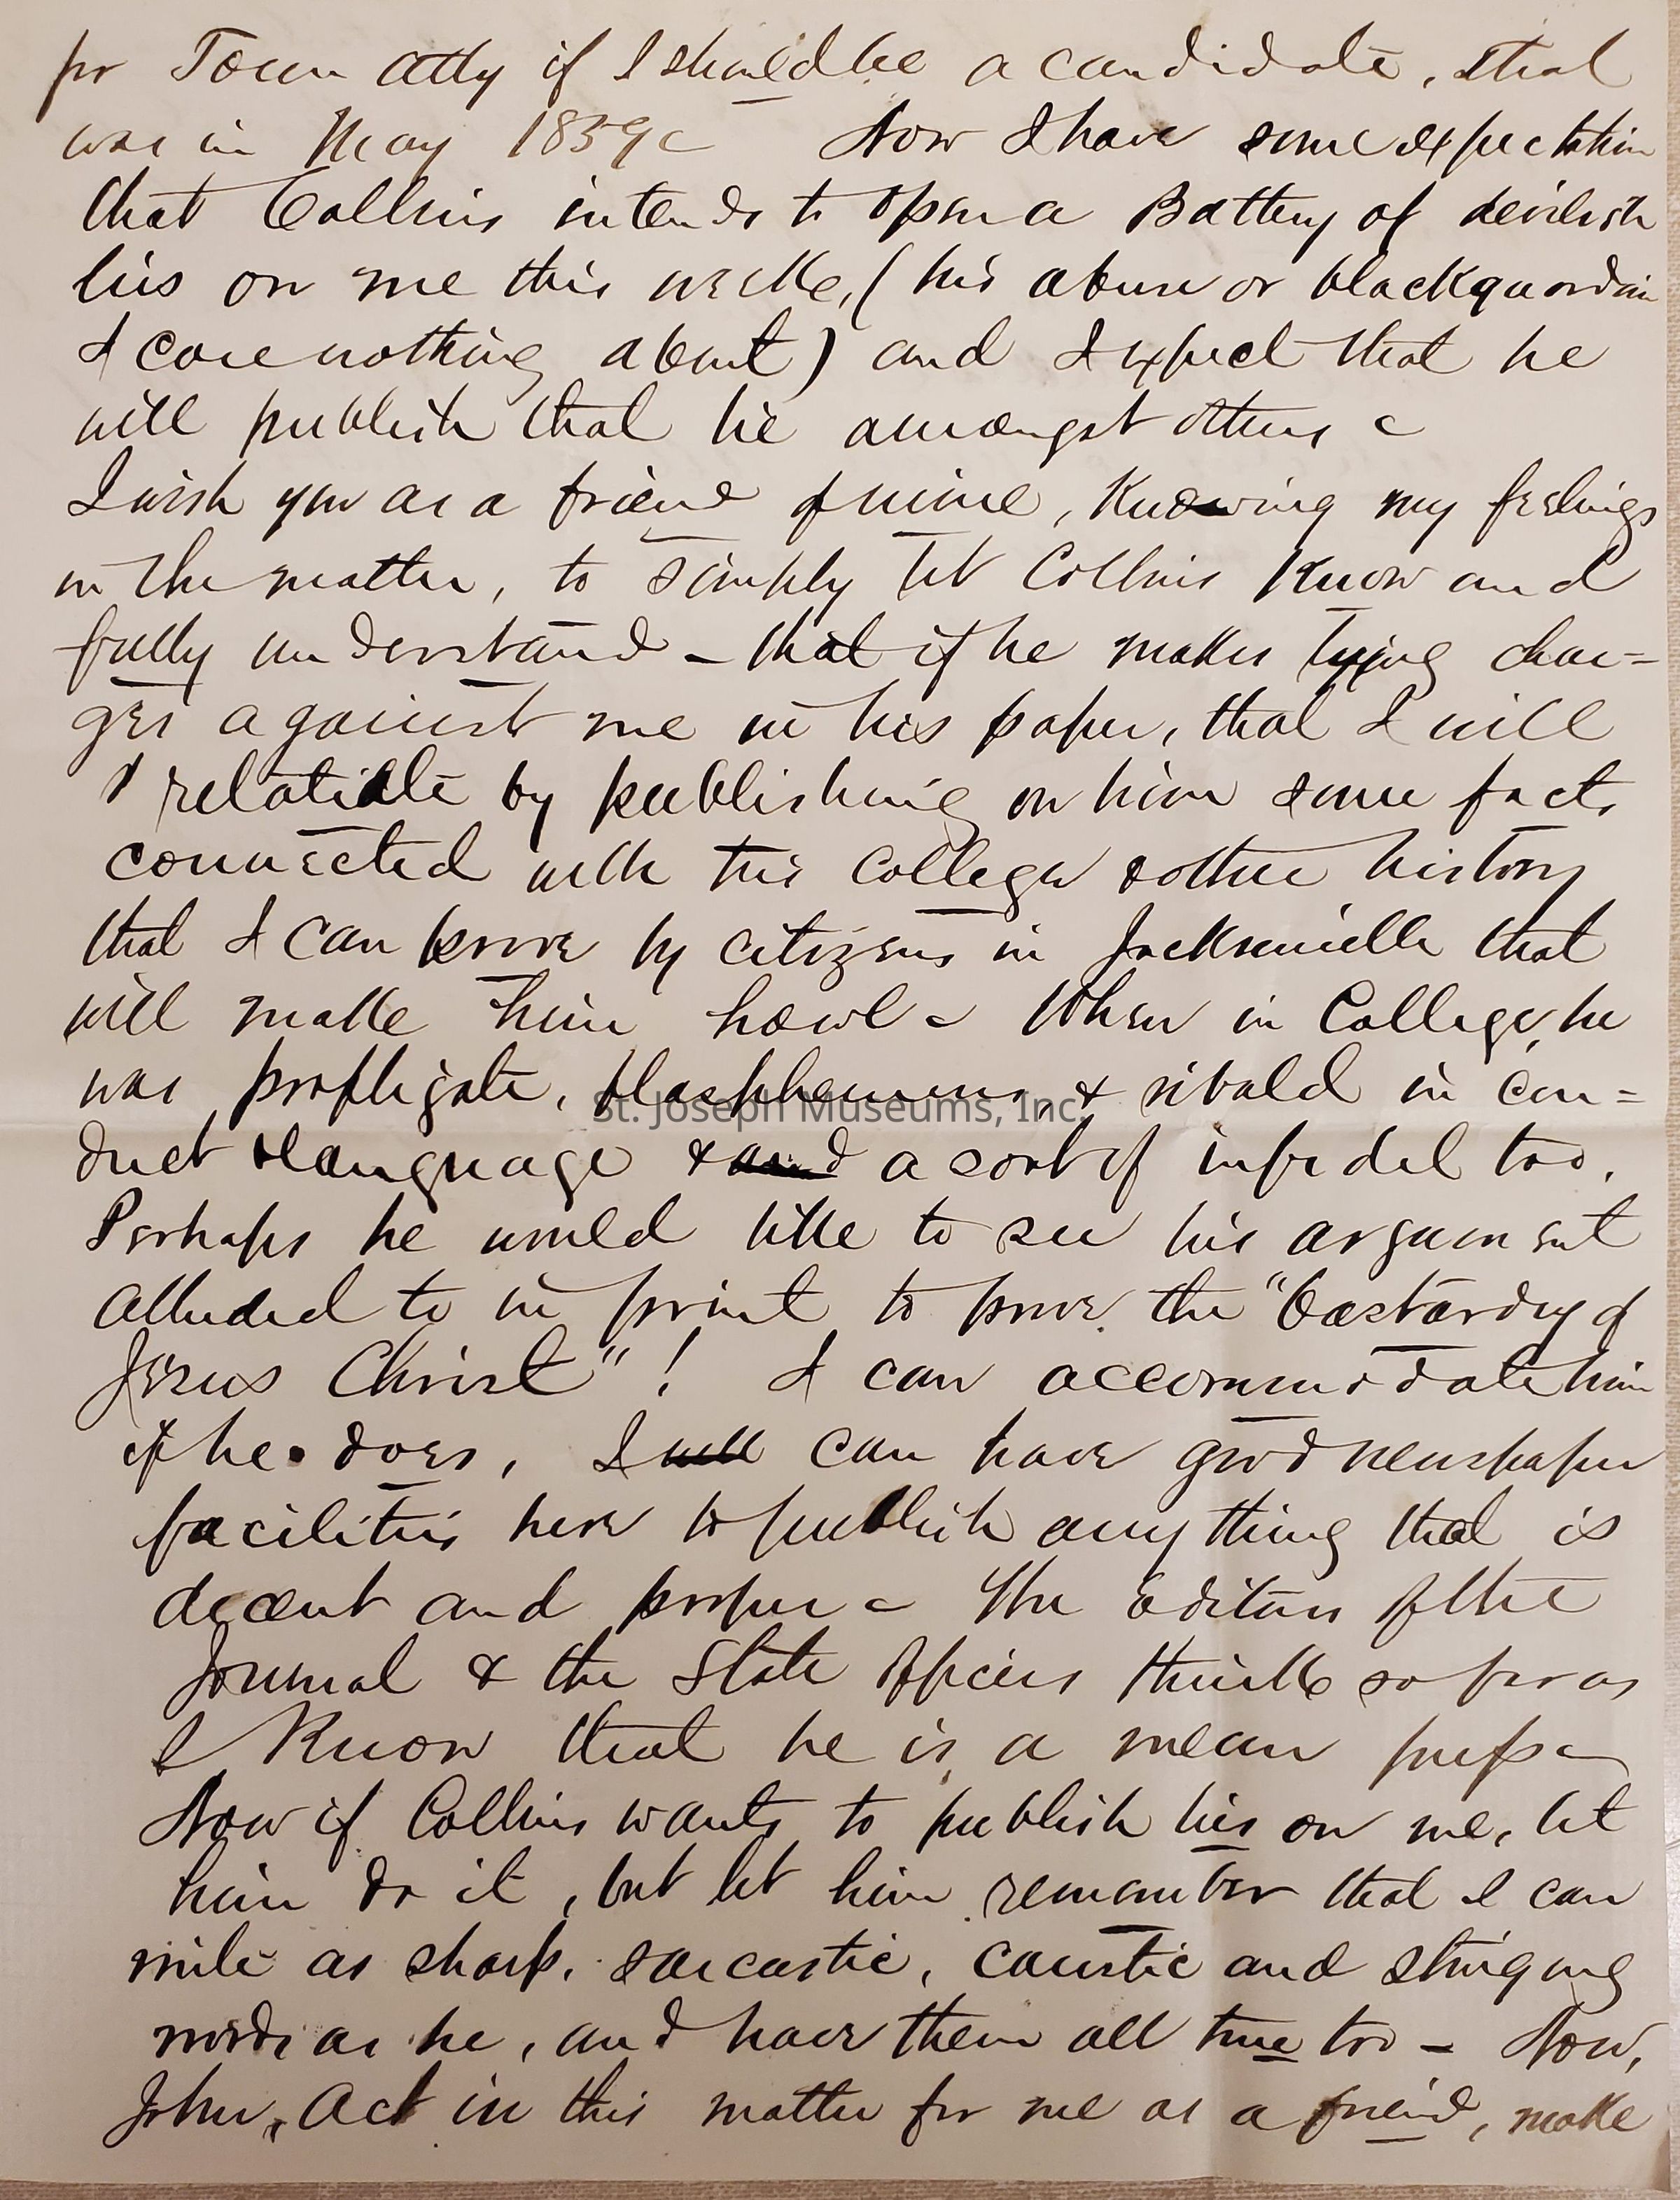 for Town Atty if I should be a candidate, that
was in May 1859 Now I have some expectation
that Collins intends to open a Battery of devilish
lies on me this week, (his abuse or blackguardin
I care nothing about) and I expect that he
will publish that lie amongst others
I wish you as a friend of mine, Knowing my feelings
in the matter, to simply let Collins Know and
fully understand – that if he makes lying char=
ges against me in his paper, that I will
retaliate by publishing on him some facts
connected with his College & other history
that I can prove by citizens in Jacksonville that
will make him howl – When in College, he
was profligate, blasphemous, & ribald in con=
duct & language & a sort of infidel too.
Perhaps he would like to see his argument
alluded to in print to prove the "bastardy of
Jesus Christ"! I can accommodate him
if he does, I will can have good newspaper
facilities here to publish any thing that is
decent and proper – The Editors of the
Journal & the State Officers think so far as
I Know that he is a mean
Now if Collins wants to publish lies on me, let
him do it, but let him remember that I can
write as sharp, sarcastic, caustic and stinging
words as he, and have them all true too – Now,
John, Act in this matter for me as a friend, make
St. Joseph Museums, Inc.